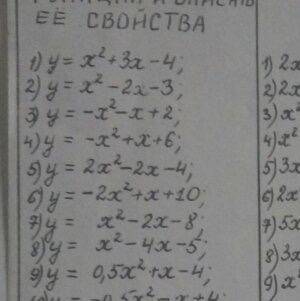 ЕЁ СВОЙСТВА
1) y = x²+3x-4;
2) y = x²-2x-3;
3) y = -x²-x+2;
4) y = -x²+x+6;
5) y = 2x²-2x-4;
6) y = -2x²+x+10;
7) y = x²-2x-8;
8) y = x²-4x-5;
9) y = 0,5x²+x-4;
1) 2x
2) 2x
3) x²
4) x²
5) 3x
6) 2x
7) 5x
8) 3x
9) x²